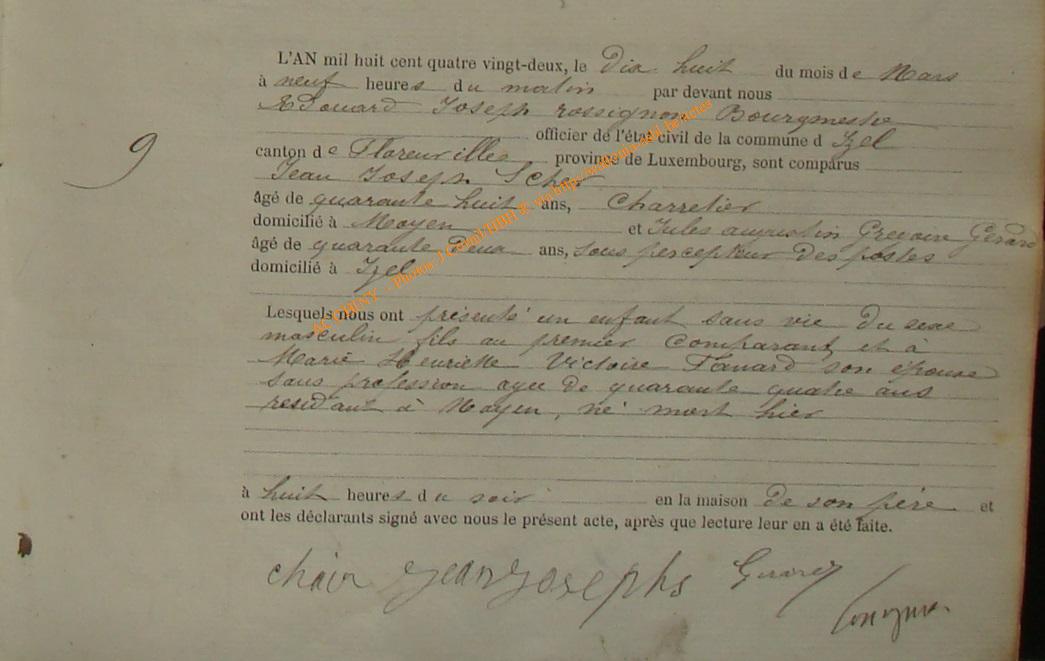 L'AN mil huit cent quatre vingt-deux, le Dix huit du mois de Mars
à neuf heures du matin par devant nous
Edouard Joseph rossignon Bourgmestre
officier de l'état civil de la commune d Izel
9
canton de Florenville province de Luxembourg, sont comparus
Jean Joseph Scher
âgé de quarante huit ans, Charretier
domicilié à Moyen et Jules augustin Gérard
âgé de quarante deux ans, sous percepteur des postes
domicilié à Izel
Lesquels nous ont présenté un enfant sans vie du sexe
masculin fils au premier Comparant et à
Marie Henriette Victoire Fanard son épouse
sans profession agee de quarante quatre ans
residant à Moyen, né mort hier
à huit heures du soir en la maison de son père et
ont les déclarants signé avec nous le présent acte, après que lecture leur en a été faite.
chair jean josephs Gerard